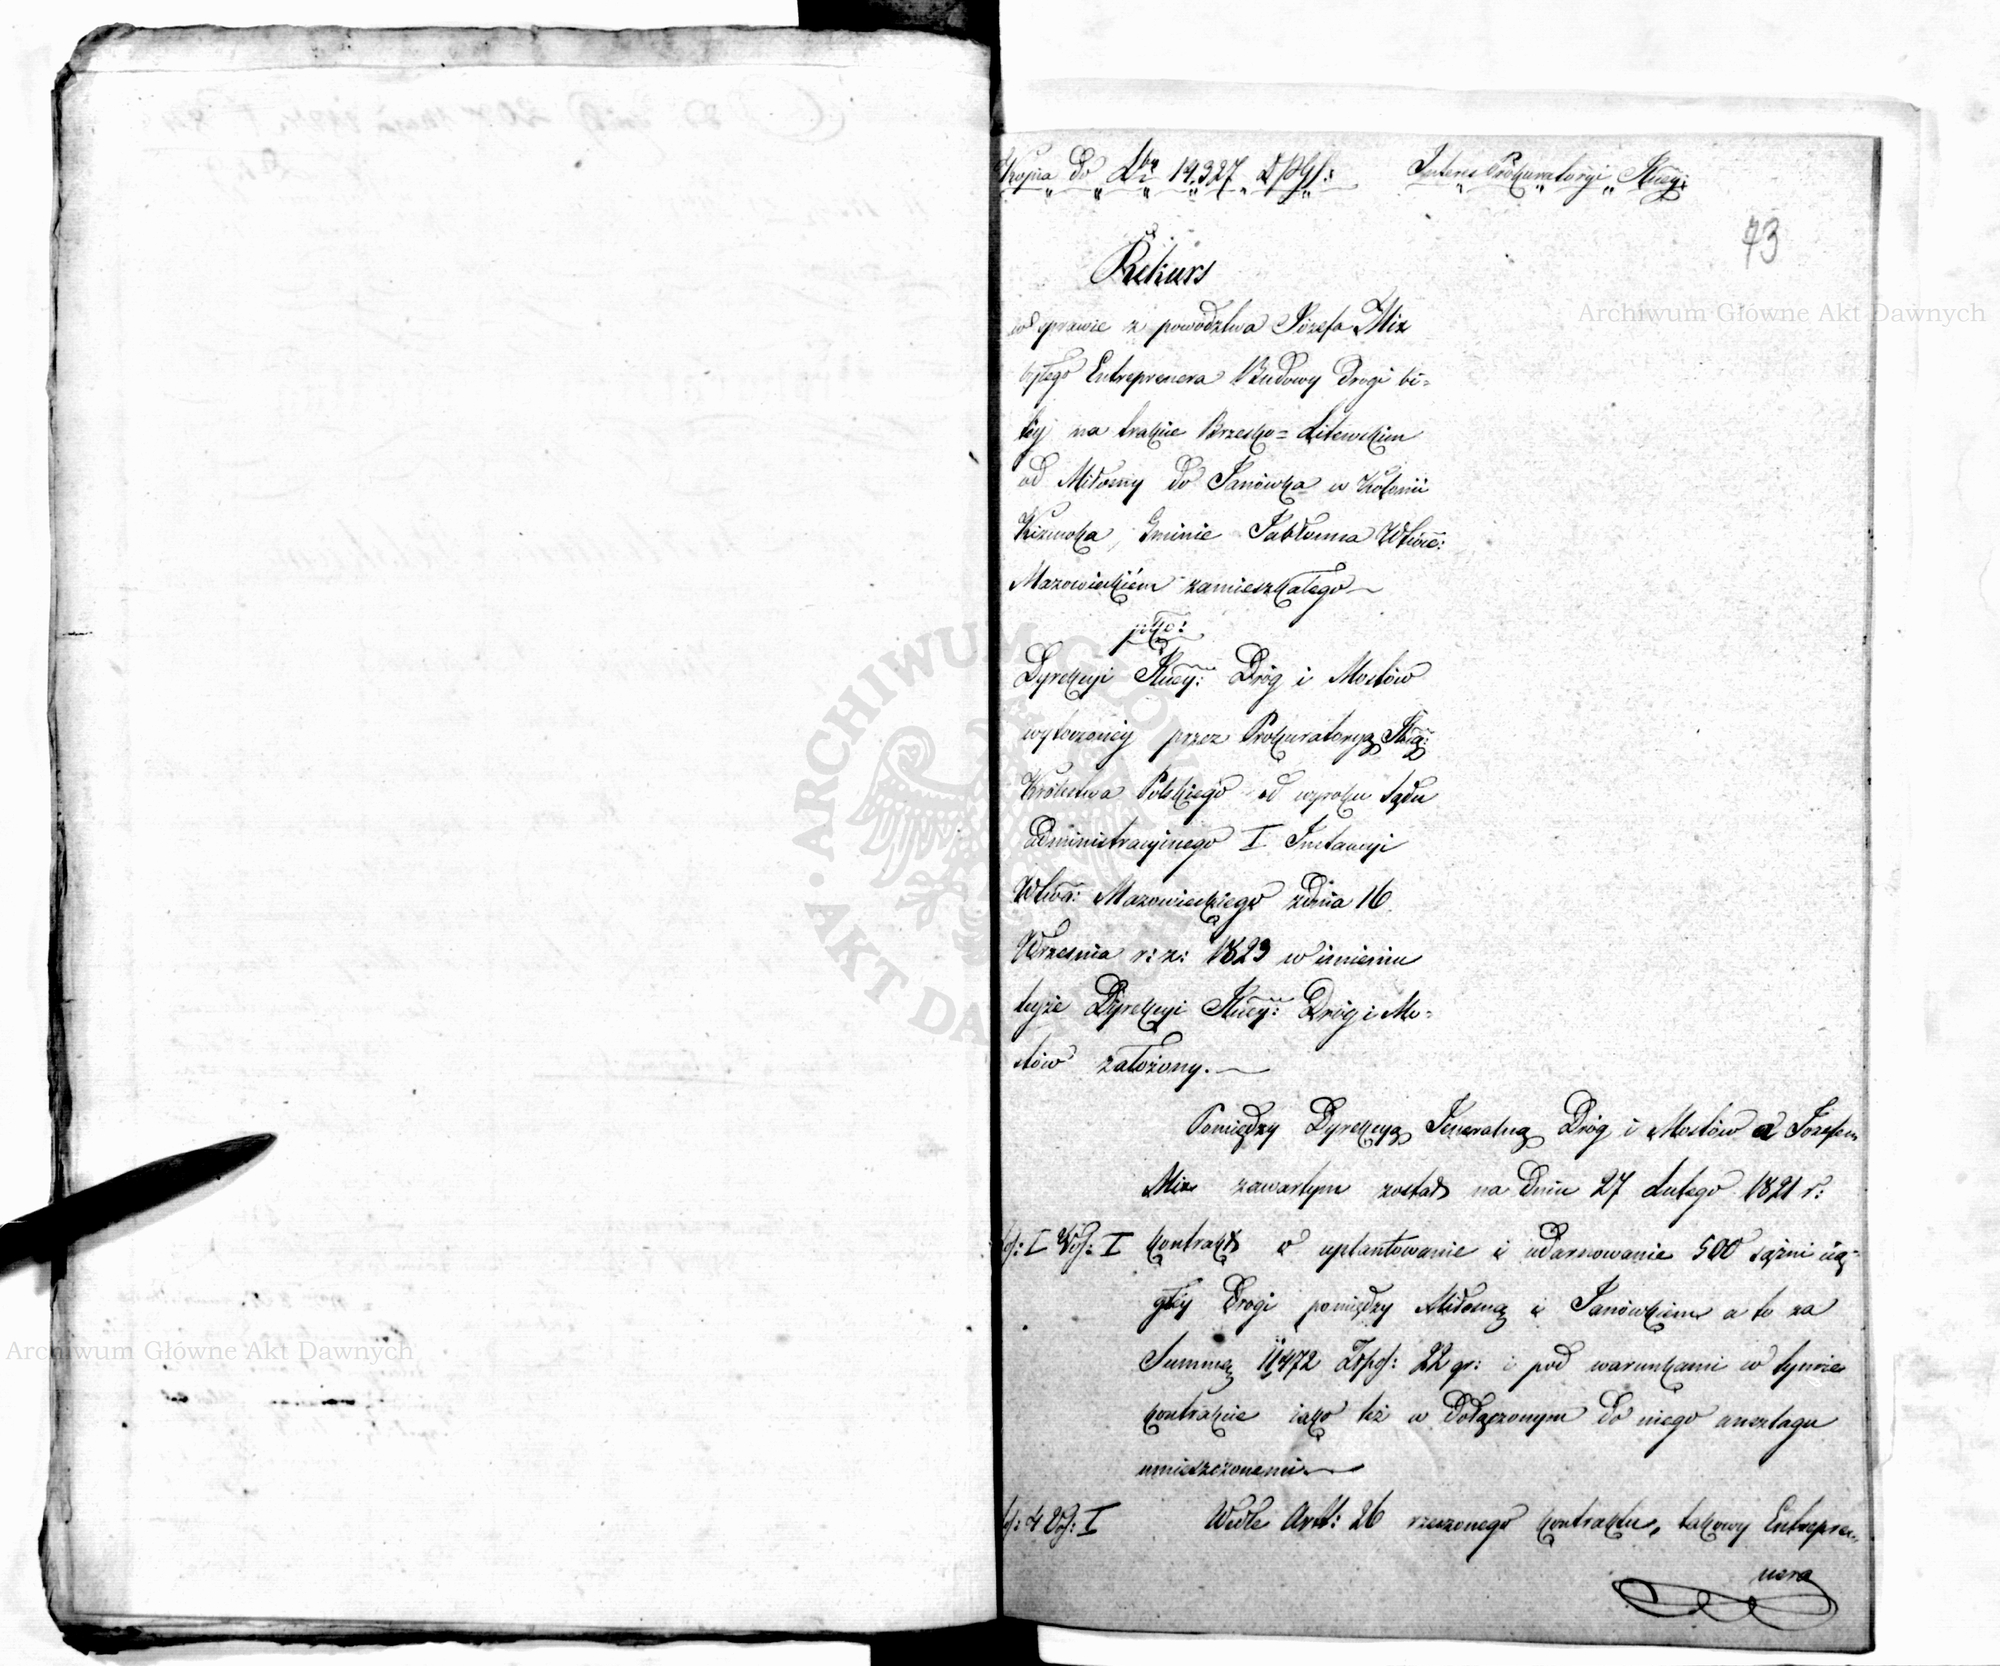 Kopia do Lbr 14,327 Interes Prokuratoryi Jlney:
73
Rekurs
w sprawie z powództwa Józefa Mix
byłego Entreprenera Budowy drogi bi=
téy na trakcie Brzesko=Litewskim
od Miłosny do Janówka w Kolonii
Gminie Jabłonna Wtwie:
Mazowieckiém zamieszkałego
ptko:
Dyrekcyi Jlney: Dróg i Mostów
wytoczonéy przez Prokuratoryą Jlną:
Królestwa Polskiego od wyroku Sądu
administracyjnego I Instancyi
Wtwa: Mazowieckiego z dnia 16
Września r: z: 1823 w imieniu
tejże Dyrekcyi Jlney: Dróg i Mo=
stów założony.
Pomiędzy Dyrekcyą Jeneralną Dróg i Mostów a Józefem
Mix zawartym został na dniu 27 Lutego 1821 r:
I Vol: I kontrakt o uplantowanie i udarnowanie 500 sążni cią=
głéy drogi pomiędzy Miłosną i Janówkiem a to za
Summę 11472 Złpol: 22 gr: i pod warunkami w tymże
kontrakcie iako też w dołączonym do niego anszlagu
umieszczonemi.
4 Vol: I Wedle Artt: 26 rzeczonego kontraktu, takowy Entrepre=
nera
Archiwum Główne Akt Dawnych
Archiwum Główne Akt Dawnych
ARCHIWUM GŁÓWNE AKT DAWNYCH